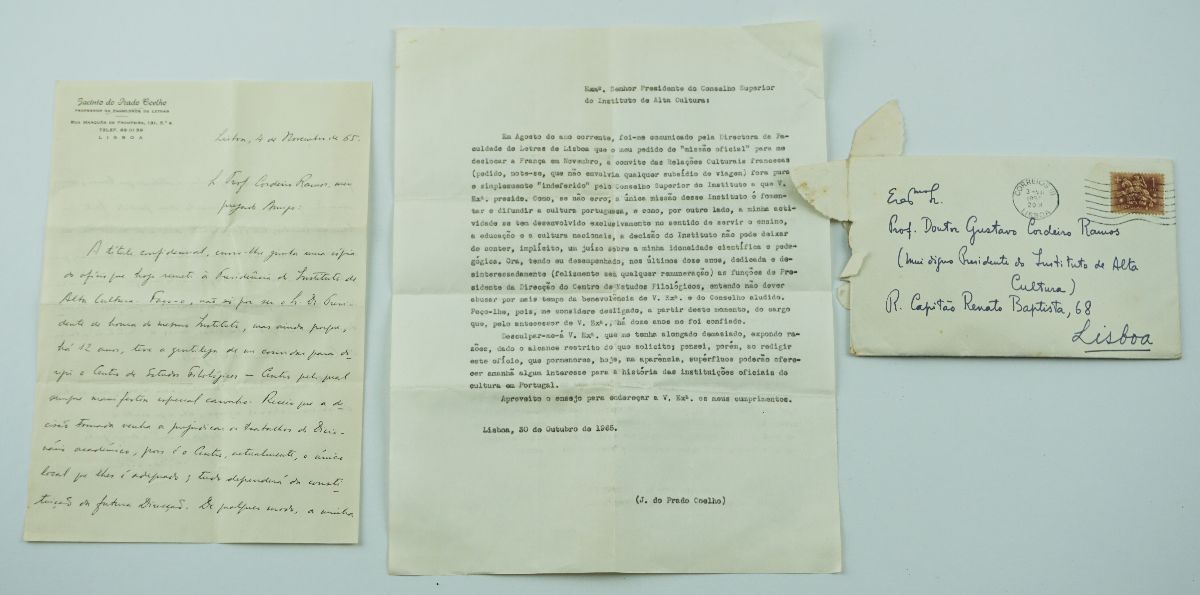 Jacinto do Prado Coelho
PROFESSOR DA FACULDADE DE LETRAS
RUA MARQUÊS DE FRONTEIRA, 131, 5.º E.
TELEF.
LISBOA
Lisboa, 4 de Novembro de 65.
Prof. Cordeiro Ramos, meu
prezado Amigo:
A título confidencial, envio-lhe junta uma cópia
do ofício que hoje remeti à Presidência do Instituto de
Alta Cultura. Faço-o, não só por ser o Presi-
dente de honra do mesmo Instituto, mas ainda porque,
há 12 anos, teve a gentileza de me convidar para di-
rigir o Centro de Estudos Filológicos — Centro pelo qual
sempre manifestou especial carinho. Receio que a de-
cisão tomada venha a prejudicar os trabalhos do Dicio-
nário académico, pois é o Centro, actualmente, o único
local que lhes é adequado; tudo dependerá da consti-
tuição da futura Direcção. De qualquer modo, a minha
Exmº. Senhor Presidente do Conselho Superior
do Instituto de Alta Cultura:
Em Agosto do ano corrente, foi-me comunicado pela Directora da Fa-
culdade de Letras de Lisboa que o meu pedido de "missão oficial" para me
deslocar a França em Novembro, a convite das Relações Culturais francesas
(pedido, note-se, que não envolvia qualquer subsídio de viagem) fora pura
e simplesmente "indeferido" pelo Conselho Superior do Instituto a que V.
Exª. preside. Como, se não erro, a única missão desse Instituto é fomen-
tar e difundir a cultura portuguesa, e como, por outro lado, a minha acti-
vidade se tem desenvolvido exclusivamente no sentido de servir o ensino,
a educação e a cultura nacionais, a decisão do Instituto não pode deixar
de conter, implícito, um juízo sobre a minha idoneidade científica e peda-
gógica. Ora, tendo eu desempenhado, nos últimos doze anos, dedicada e de-
sinteressadamente (felizmente sem qualquer remuneração) as funções de Pre-
sidente da Direcção do Centro de Estudos Filológicos, entendo não dever
abusar por mais tempo da benevolência de V. Exª. e do Conselho aludido.
Peço-lhe, pois, me considere desligado, a partir deste momento, do cargo
que, pelo antecessor de V. Exª., há doze anos me foi confiado.
Desculpar-me-á V. Exª. que me tenha alongado demasiado, expondo ra-
zões, dado o alcance restrito do que solicito; pensei, porém, ao redigir
este ofício, que pormenores, hoje, na aparência, supérfluos poderão ofere-
cer amanhã algum interesse para a história das instituições oficiais de
cultura em Portugal.
Aproveito o ensejo para endereçar a V. Exª. os meus cumprimentos.
Lisboa, 30 de Outubro de 1965.
(J. do Prado Coelho)
CORREIOS
LISBOA
Prof. Doutor Gustavo Cordeiro Ramos
(Mui digno Presidente do Instituto de Alta
Cultura)
R. Capitão Renato Baptista, 68
Lisboa